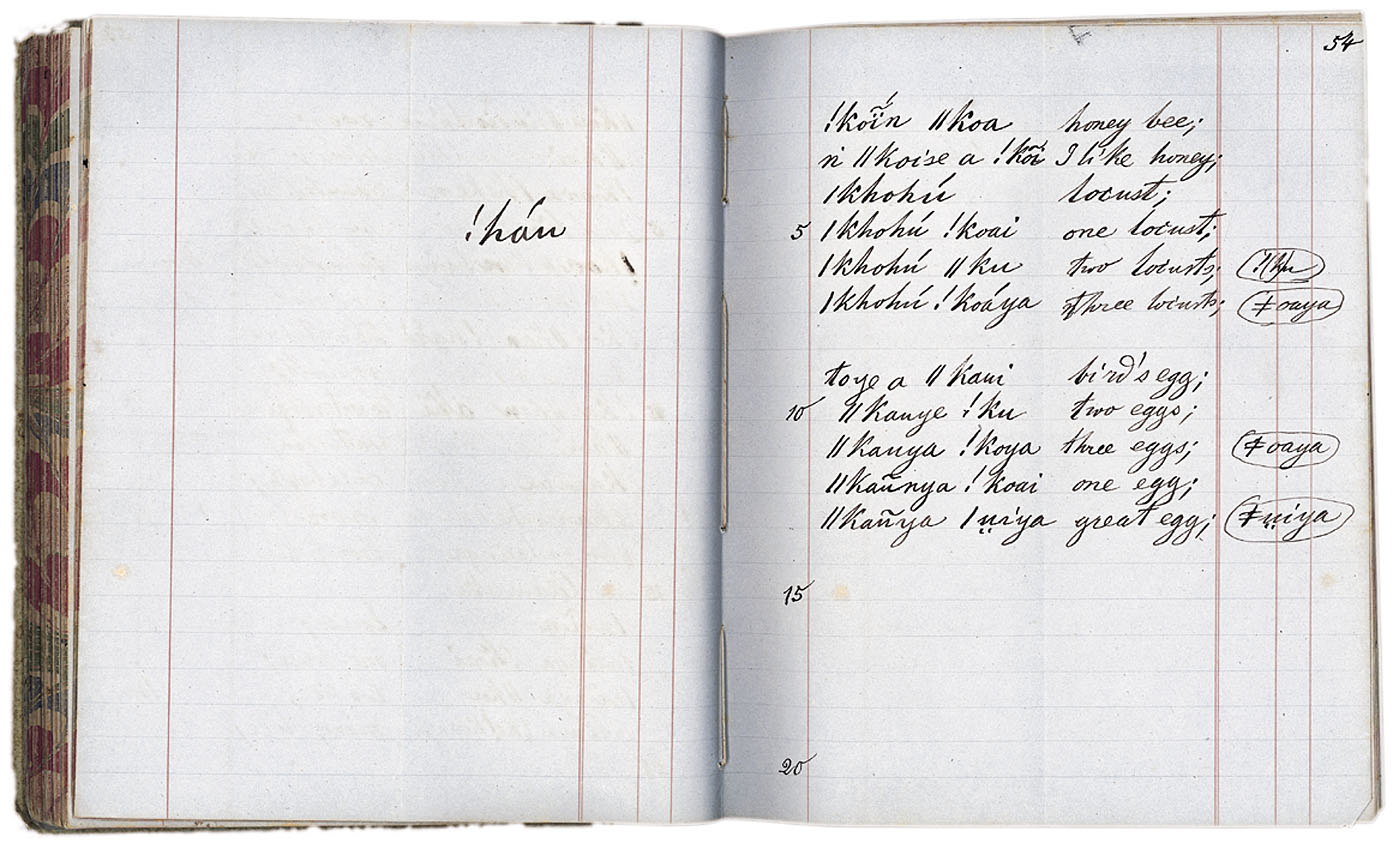 !hán
54
!kõïn ǁkoa honey bee;
ń ǁkoise a !kõï I like honey;
ǀkhohú locust;
5 ǀkhohú !koai one locust;
ǀkhohú ǁku two locusts; !ku
ǀkhohú !koáya three locusts; ǂoaya
toye a ǁkaui bird's egg;
10 ǁkauye !ku two eggs;
ǁkauya !koya three eggs; ǂoaya
ǁkaũnya !koai one egg;
ǁkaũya ǀṳiya great egg; ǂṳiya
15
20